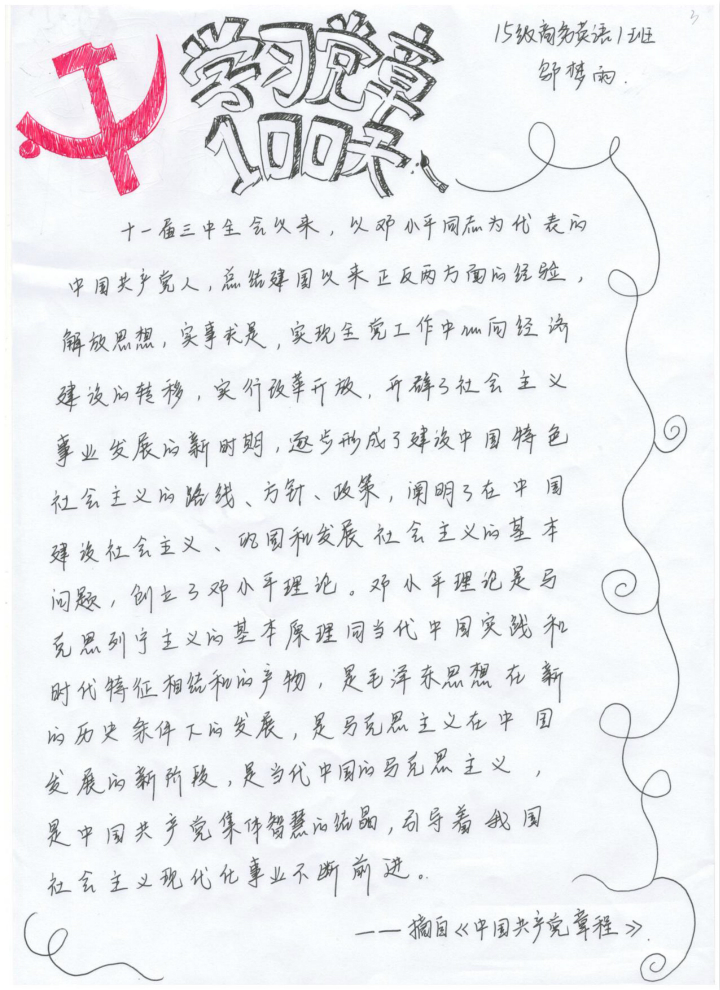 15级商务英语1班
邹梦雨.
学习党章
100天
十一届三中全会以来，以邓小平同志为代表的
中国共产党人，总结建国以来正反两方面的经验，
解放思想，实事求是，实现全党工作中心向经济
建设的转移，实行改革开放，开辟了社会主义
事业发展的新时期，逐步形成了建设中国特色
社会主义的路线、方针、政策，阐明了在中国
建设社会主义、巩固和发展社会主义的基本
问题，创立了邓小平理论。邓小平理论是马
克思列宁主义的基本原理同当代中国实践和
时代特征相结和的产物，是毛泽东思想在新
的历史条件下的发展，是马克思主义在中国
发展的新阶段，是当代中国的马克思主义，
是中国共产党集体智慧的结晶，引导着我国
社会主义现代化事业不断前进。
——摘自《中国共产党章程》.